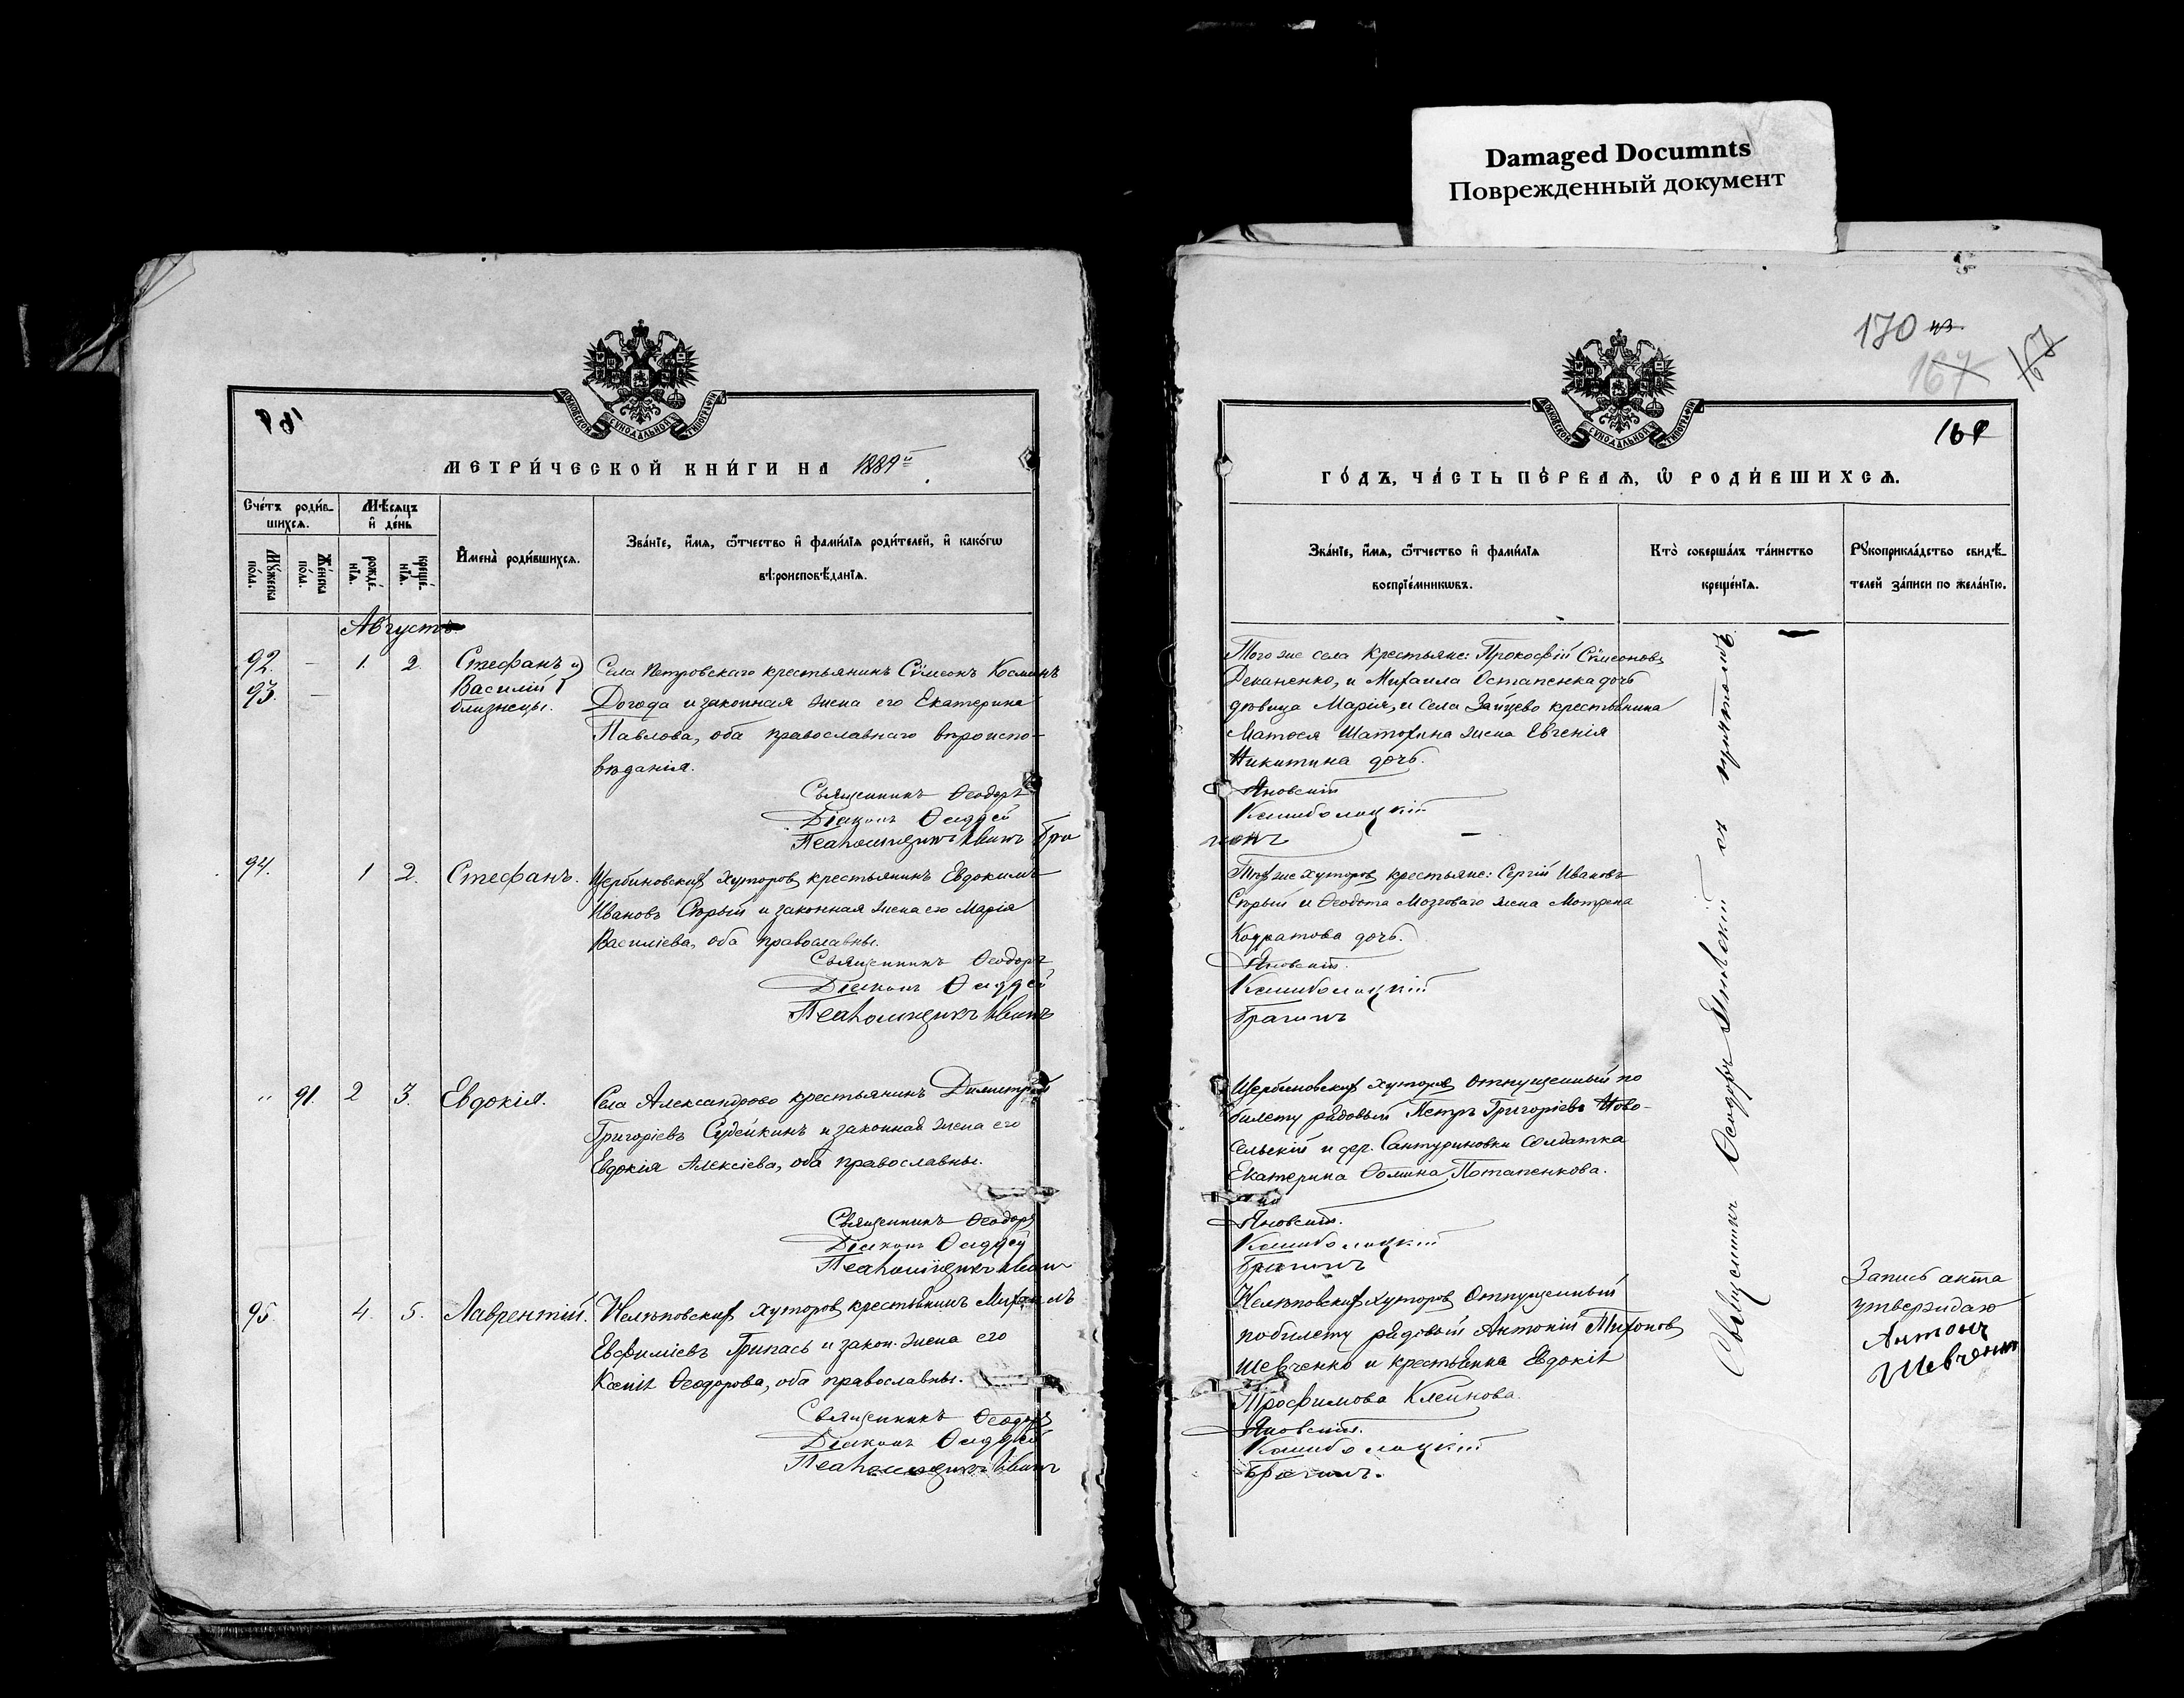 Damaged Documnts
Поврежденный документ
МОСКОВСКОЙ СѴНОДАЛЬНОЙ ТИПОГРАФІИ
МЕТРИ́ЧЕСКОЙ КНИ́ГИ НА 1889й
Сче́тъ роди́в-
шихсѧ.
Мѣ́сѧцъ
и҆ де́нь
Мꙋ́жеска
по́ла.
Же́нска
по́ла.
рожде́-
нїѧ.
креще́-
нїѧ.
И҆мена̀ роди́вшихсѧ.
Зва́нїе, и҆́мѧ, ѻ҆́тчество и҆ фами́лїѧ роди́телей, и҆ како́гѡ
вѣроисповѣ́данїѧ.
Августъ
92. – 1. 2. Стефанъ и
93. – Василій
близнецы.
Села Петровскаго крестьянинъ Сѵмеонъ Косминъ
Догода и законная жена его Екатерина
Павлова, оба православнаго вѣроиспо-
вѣданія.
Священникъ Ѳеодоръ
Діаконъ Ѳаддей
Псаломщикъ Иванъ Бра
94. 1 2. Стефанъ. Щербиновскихъ хуторовъ крестьянинъ Евдокимъ
Ивановъ Сѣрый и законная жена его Марія
Василіева, оба православны.
Священникъ Ѳеодоръ
Діаконъ Ѳаддей
Псаломщикъ Иванъ
" 91. 2 3. Евдокія. Села Александрово крестьянинъ Димитрій
Григоріевъ Судейкинъ и законная жена его
Евдокія Алексіева, оба православны.
Священникъ Ѳеодоръ
Діаконъ Ѳаддей
Псаломщикъ Иванъ
95. 4. 5. Лаврентій. Нелѣповскихъ хуторовъ крестьянинъ Михаилъ
Евфиміевъ Грипась и закон. жена его
Ксенія Ѳеодорова, оба православны.
Священникъ Ѳеодоръ
Діаконъ Ѳаддей
Псаломщикъ Иванъ
170
167
167
МОСКОВСКОЙ СѴНОДАЛЬНОЙ ТИПОГРАФІИ
ГО́ДЪ, ЧА́СТЬ ПЕ́РВАѦ, Ѡ҆ РОДИ́ВШИХСѦ.
Зва́нїе, и҆́мѧ, ѻ҆́тчество и҆ фами́лїѧ
воспрїе́мникѡвъ.
Кто̀ соверша́лъ та́инство
креще́нїѧ.
Рꙋкоприкла́дство свидѣ́-
телей за́писи по жела́нїю.
Того же села крестьяне: Прокофій Сѵмеоновъ
Деканенко, и Михаила Остапенка дочь
дѣвица Марія, и села Зайцево крестьянина
Матѳея Шатохина жена Евгенія
Никитина дочь.
Яновскій
гинъ
Тѣхъ же хуторовъ крестьяне: Сергій Ивановъ
Сѣрый и Ѳеодота Мозговаго жена Мотрона
Кодратова дочь.
Яновскій.
Брагинъ
Щербиновскихъ хуторовъ отпущенный по
билету рядовый Петръ Григоріевъ Ново-
сельскій и дер. Сантуриновки солдатка
Екатерина Ѳомина Потапенкова.
Яновскій.
Брагинъ
Нелѣповскихъ хуторовъ отпущенный
по билету рядовый Антоній Тихоновъ
Шевченко и крестьянка Евдокія
Трофимова Клейнова.
Яновскій.
Брагинъ.
Священникъ Ѳеодоръ Яновскій съ причтомъ.
Запись акта
утверждаю
Антонъ
Шевченко